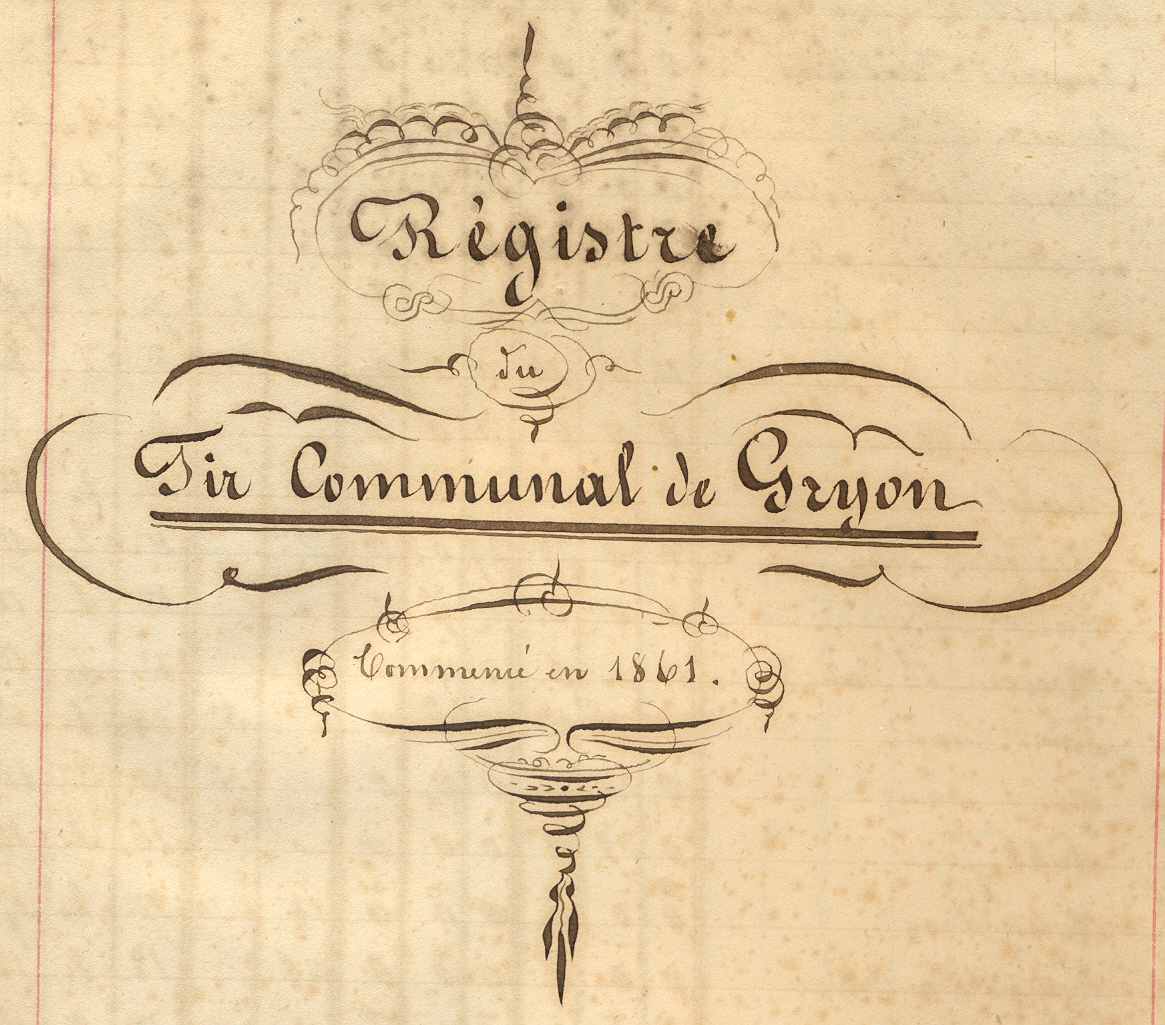 Règistre
du
Tir Communal de Gryon
Commencé en 1861.